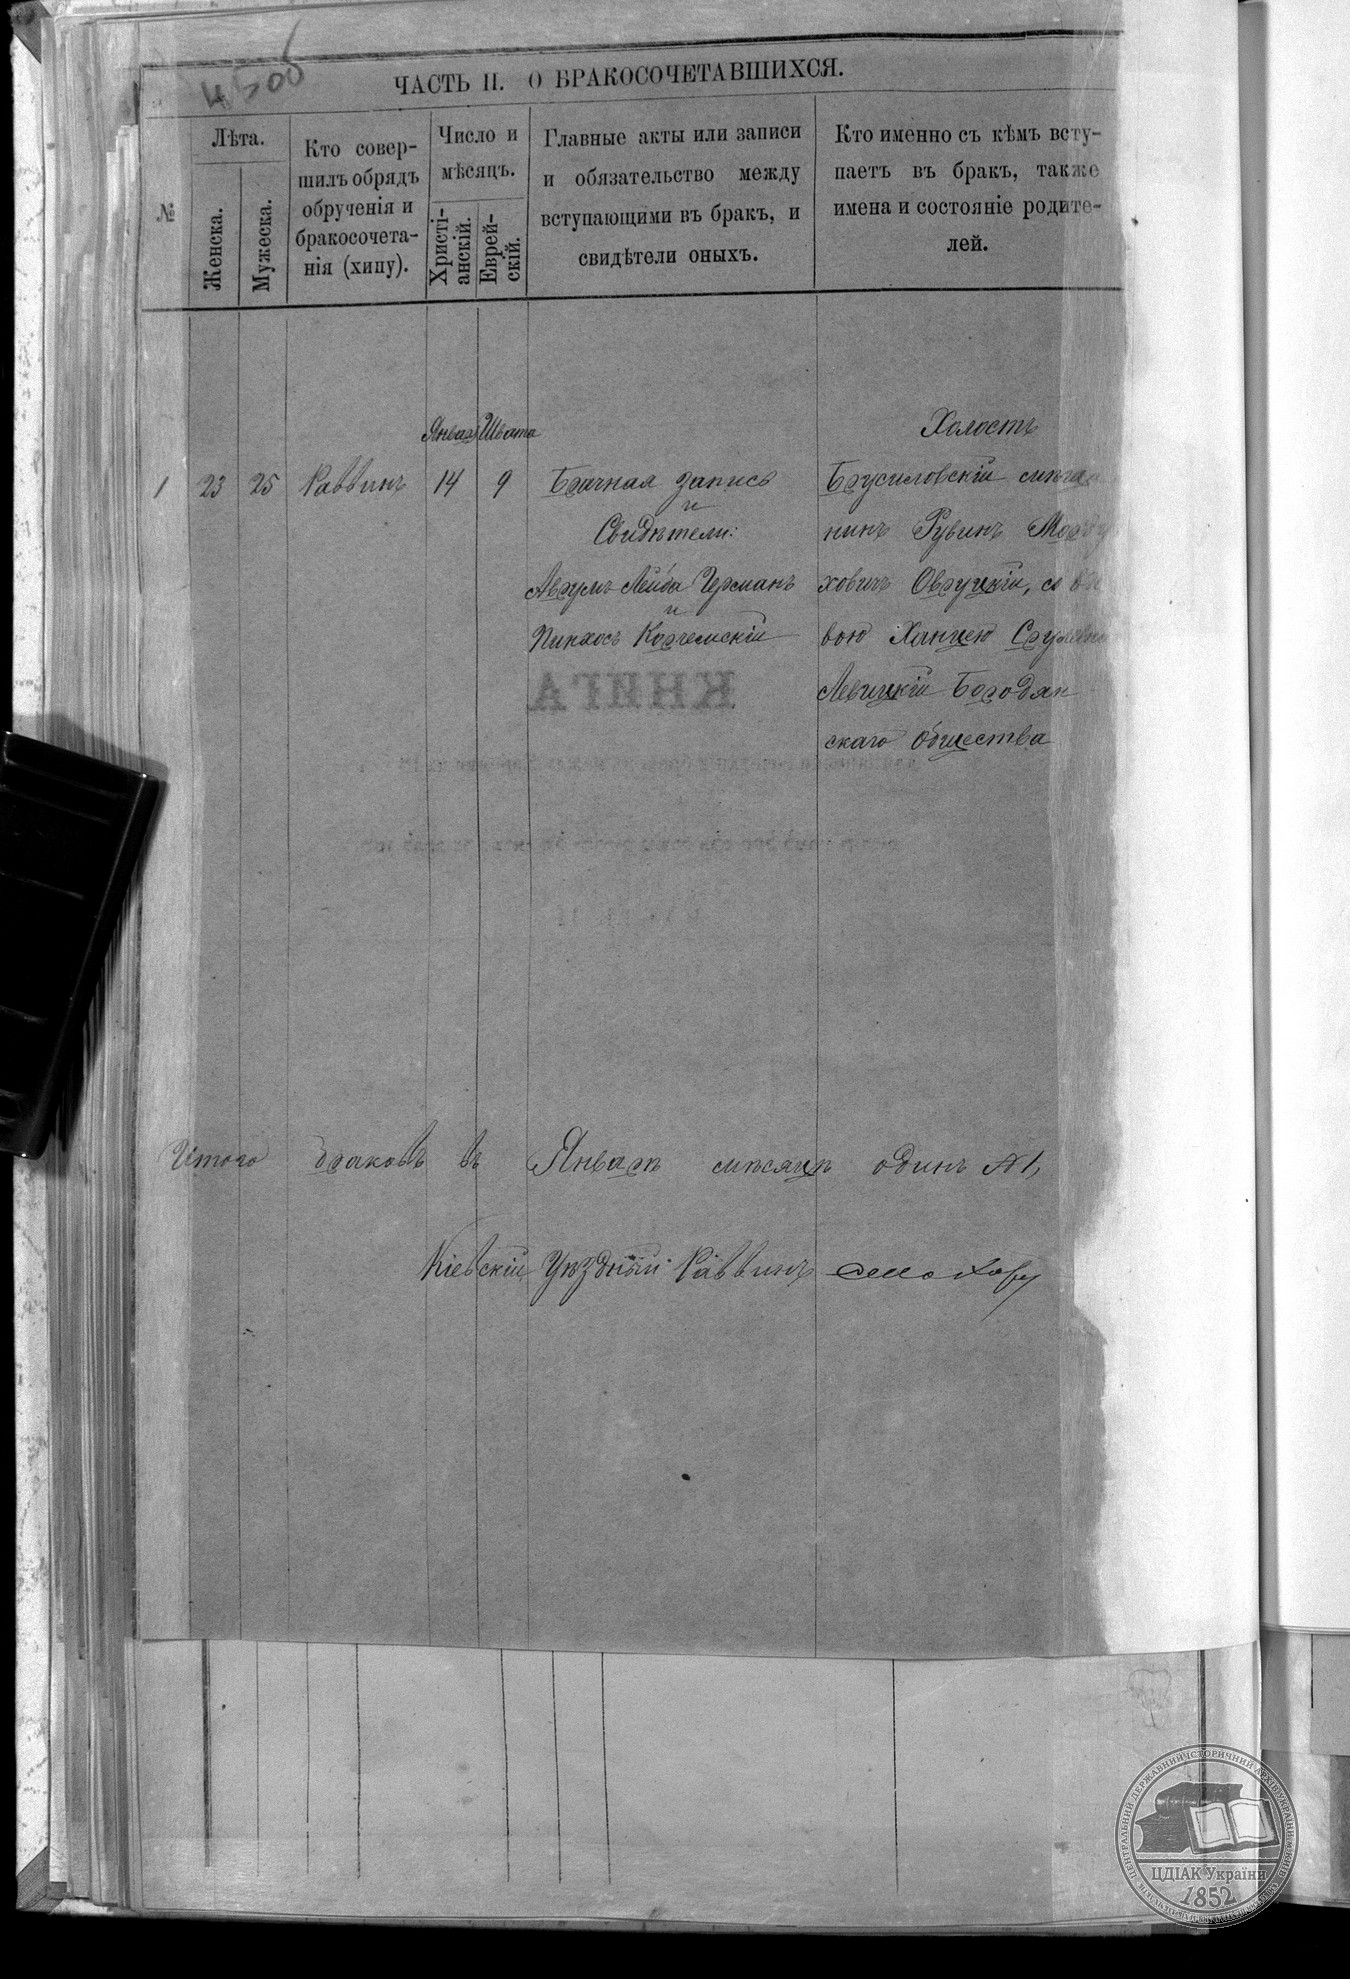 450об
ЧАСТЬ II. О БРАКОСОЧЕТАВШИХСЯ.
№
Лѣта.
Женска.
Мужеска.
Кто совер-
шилъ обрядъ
обрученія и
бракосочета-
нія (хипу).
Число и
мѣсяцъ.
Христі-
анскій.
Еврей-
скій.
Главные акты или записи
и обязательство между
вступающими въ бракъ, и
свидѣтели оныхъ.
Кто именно съ кѣмъ всту-
паетъ въ бракъ, также
имена и состояніе родите-
лей.
Январ Швата
1 23 25 Раввинъ 14 9
Брачная запись
и
Свидѣтели:
Аврумъ Лейба Германъ
и
Пинхосъ Корчемскій
Холостъ
Брусиловскій мѣща
нинъ Рувинъ Морду
ховичъ Овруцкій, съ
вою Ханцею Срулевн
Левицкій Бородян
скаго общества
КНИГА
Итого браковъ въ Январѣ мѣсяцѣ одинъ №1,
Кіевскій Уѣздный Раввинъ
ЦЕНТРАЛЬНИЙ ДЕРЖАВНИЙ ІСТОРИЧНИЙ АРХІВ УКРАЇНИ, М. КИЇВ
ЦДІАК України
1852